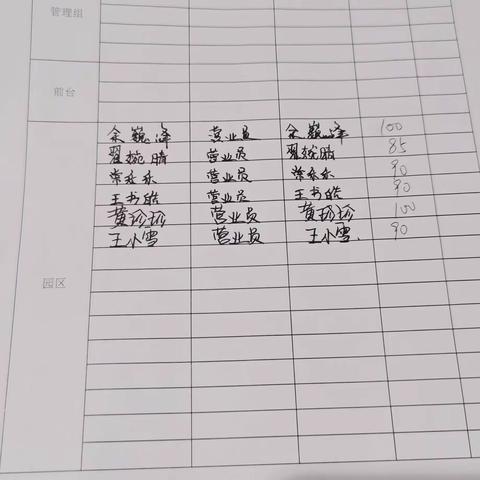 管理组
前台
余巍峰 营业员 余巍峰 100
翟婉晴 营业员 翟婉晴 85
常永永 营业员 常永永 90
王书皓 营业员 王书皓 90
黄珍珍 营业员 黄珍珍 100
王小雪 营业员 王小雪. 90
园区